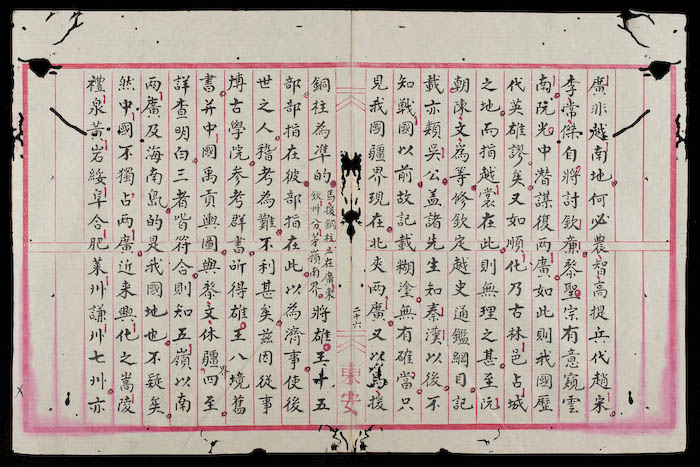 廣非越南地何必農智高提兵代趙宋
李常傑自將討欽廉黎聖宗有意窺雲
南阮光中潛謀復两廣如此則我國歷
代英雄謬矣又如順化乃古林邑占城
之地而指越裳在此則無理之甚至阮
朝陳文為等修欽定越史通鑑綱目記
載亦類吳公盖諸先生知秦漢以後不
知戰國以前故記載糊塗無有確當只
見我國疆界現在北夾两廣又以馬援
二十六
東安
銅柱為準的馬援銅柱立在廣東欽州分茅嶺南界將雄王十五
部部指在彼部指在此以為濟事使後
世之人稽考為難不利甚矣茲因從事
博古學院参考群書所得雄王八境舊
書并中國禹貢輿圖與黎文休疆界四至
詳查明白三者皆符合則知五嶺以南
两廣及海南島的是我國地也不疑矣
然中國不獨占两廣近来興化之嵩陵
禮泉黃岩綏阜合肥萊州謙州七州亦